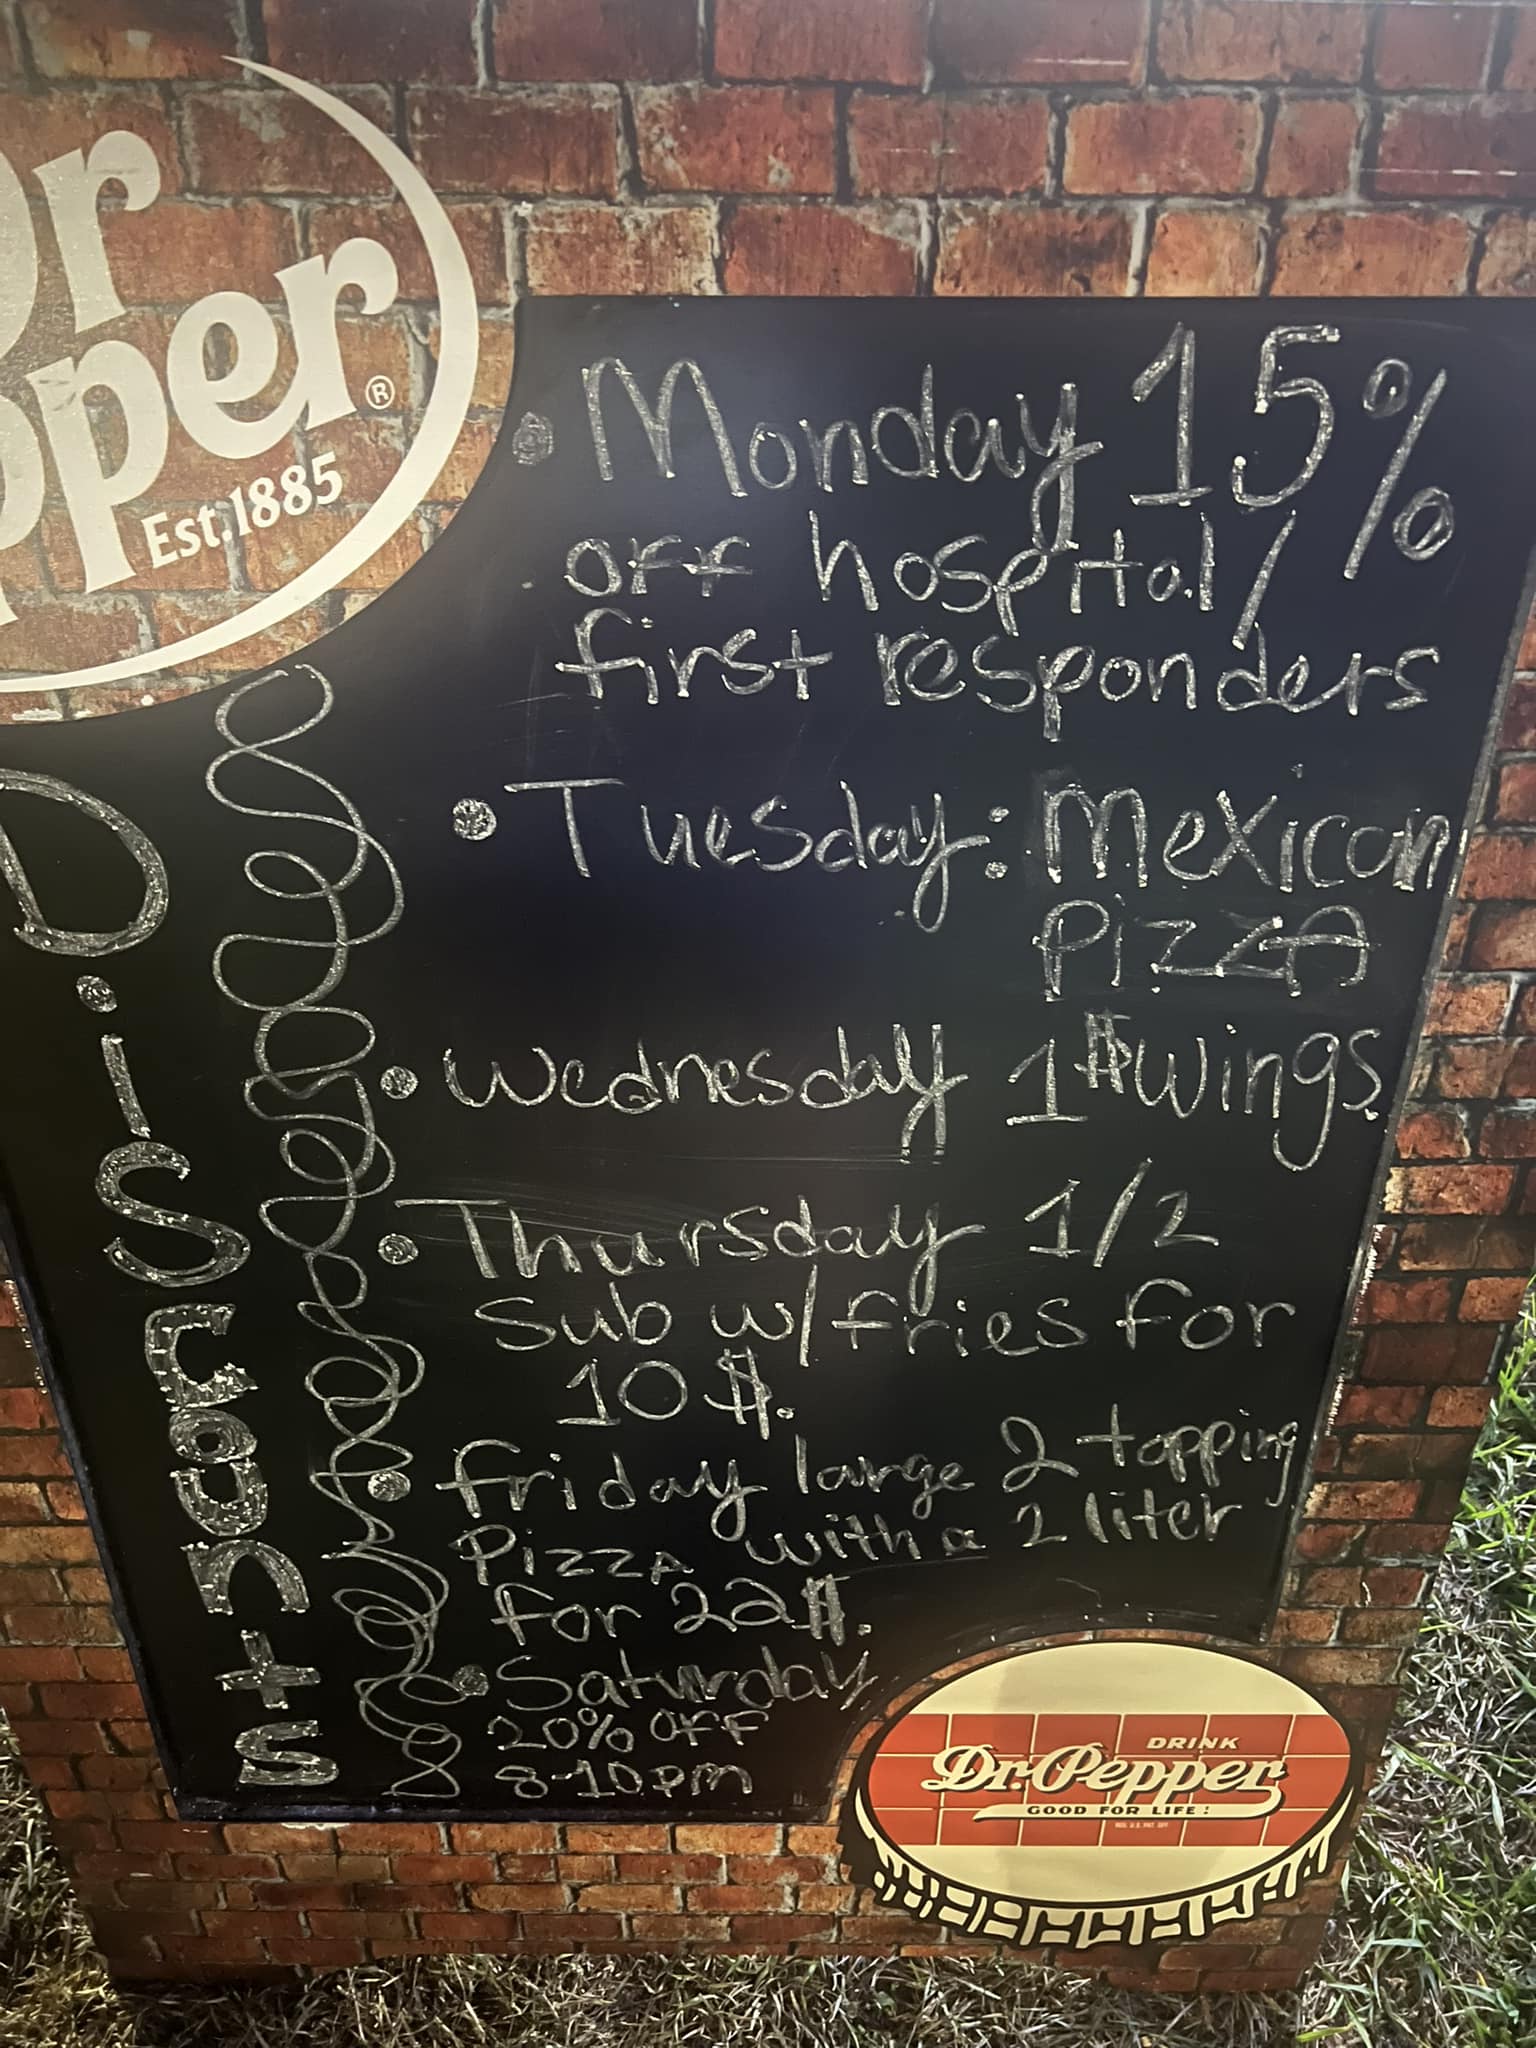 Dr
Pepper®
Est.1885
Discounts
• Monday 15%
off hospital/
first responders
• Tuesday: Mexican
Pizza
• Wednesday 1$ wings
• Thursday 1/2
Sub w/fries for
10$.
• Friday large 2 topping
Pizza with a 2 liter
for 22$.
• Saturday
20% off
8-10pm
DRINK
Dr. Pepper
GOOD FOR LIFE!